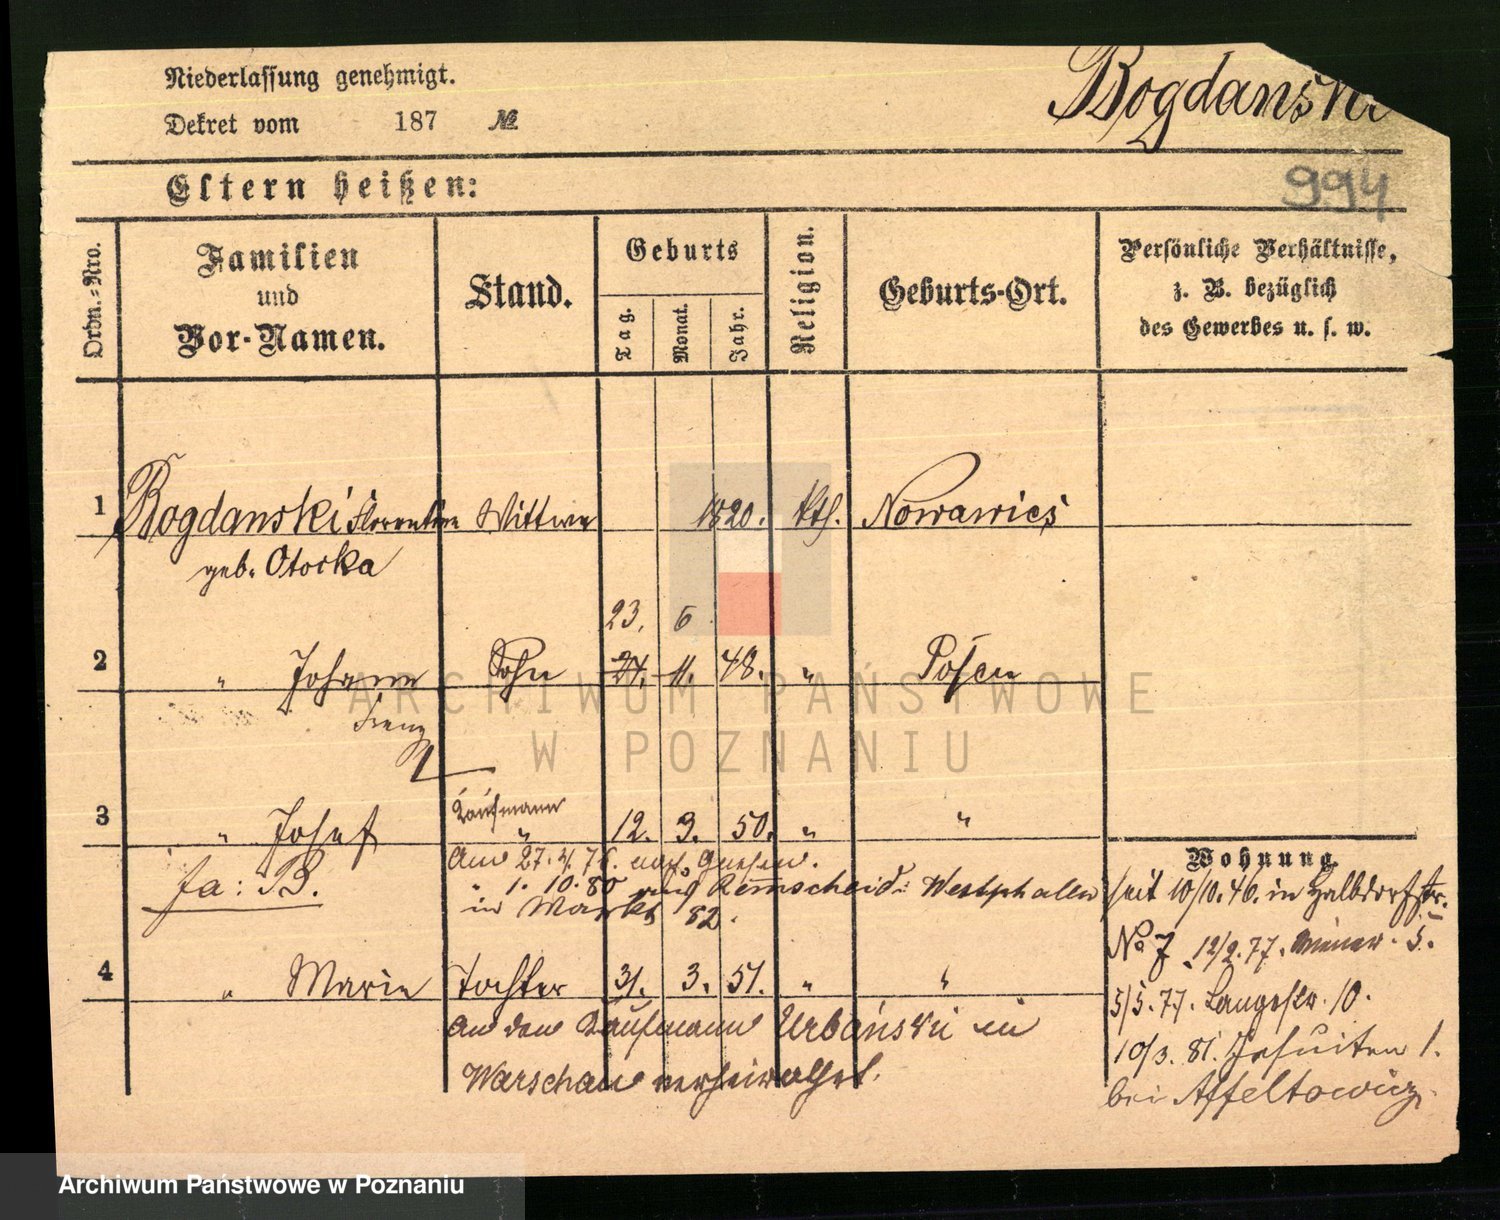 Niederlassung genehmigt.
Dekret vom 187 №
Bogdanski
Eltern heißen:
994
Ordn.-Nro.
Familien
und
Vor-Namen.
Stand.
Geburts
Tag.
Monat.
Jahr.
Religion.
Geburts-Ort.
Persönliche Verhältnisse,
z. B. bezüglich
des Gewerbes u. s. w.
1 Bogdanski Florentine Wittwe 1820. kth. Nowawies
geb. Otocka
23. 6
2 " Johann Sohn 24. 11. 48. " Posen
Franz
3 " Josef Kaufmann " 12. 3. 50. " "
Am 27. 4. 78. nach Gnesen.
Fa: B.
" 1. 10. 80 nach Remscheid: Westphalen
in Markt 82.
4 " Marie Tochter 31. 3. 51. " "
An den Kaufmann Urbański in
Warschau verheirathet.
Wohnung.
seit 10/10. 76. in Halbdorfstr.
No 7 12/2. 77. Wiener 5.
5/5. 77. Langestr. 10.
10/3. 81. Jesuiten 1.
bei Affeltowicz
ARCHIWUM PAŃSTWOWE
W POZNANIU
Archiwum Państwowe w Poznaniu